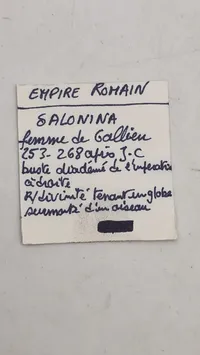 EMPIRE ROMAIN
SALONINA
femme de Gallien
253-268 après J-C
buste diadémé de l'impératrice
à droite
R/divinité tenant un globe
surmonté d'un oiseau